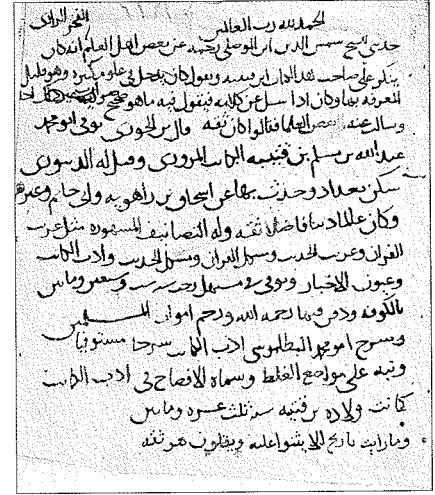 الحمد لله رب العالمين
حدثني الشيخ شمس الدين ابن الموصلي رحمه عن بعض اهل العلم انه كان
ينكر على صاحب هذا الكتاب ابن قتيبة ويقول كان يدخل في علوم كثيرة وهو قليل
المعرفة بها وكان اذا سئل عن كلامه فيقول فيه ما هو صحيح
وسالت عنه بعض العلماء فقالوا كان ثقة قال ابن الجوزي توفي ابو محمد
عبد الله بن مسلم بن قتيبة الكاتب المروزي وقيل له الدينوري
سكن بغداد وحدث بها عن اسحاق بن راهويه وابي حاتم وغيرهم
وكان عالما دينا فاضلا ثقة وله التصانيف المشهورة مثل غريب
القران وغريب الحديث ومشكل القران ومشكل الحديث وادب الكاتب
وعيون الاخبار وتوفي في مستهل رجب سنة ست وسبعين ومايتين
بالكوفة ودفن فيها رحمه الله ورحم اموات المسلمين
وشرح ابو محمد البطليوسي ادب الكاتب شرحا مستوفيا
ونبه على مواضع الغلط وسماه الاقتضاب في ادب الكاتب
كانت ولادة بن قتيبة سنة ثلث عشرة ومايتين
وما رايت تاريخ الا يثنوا عليه ويقولون هو ثقة